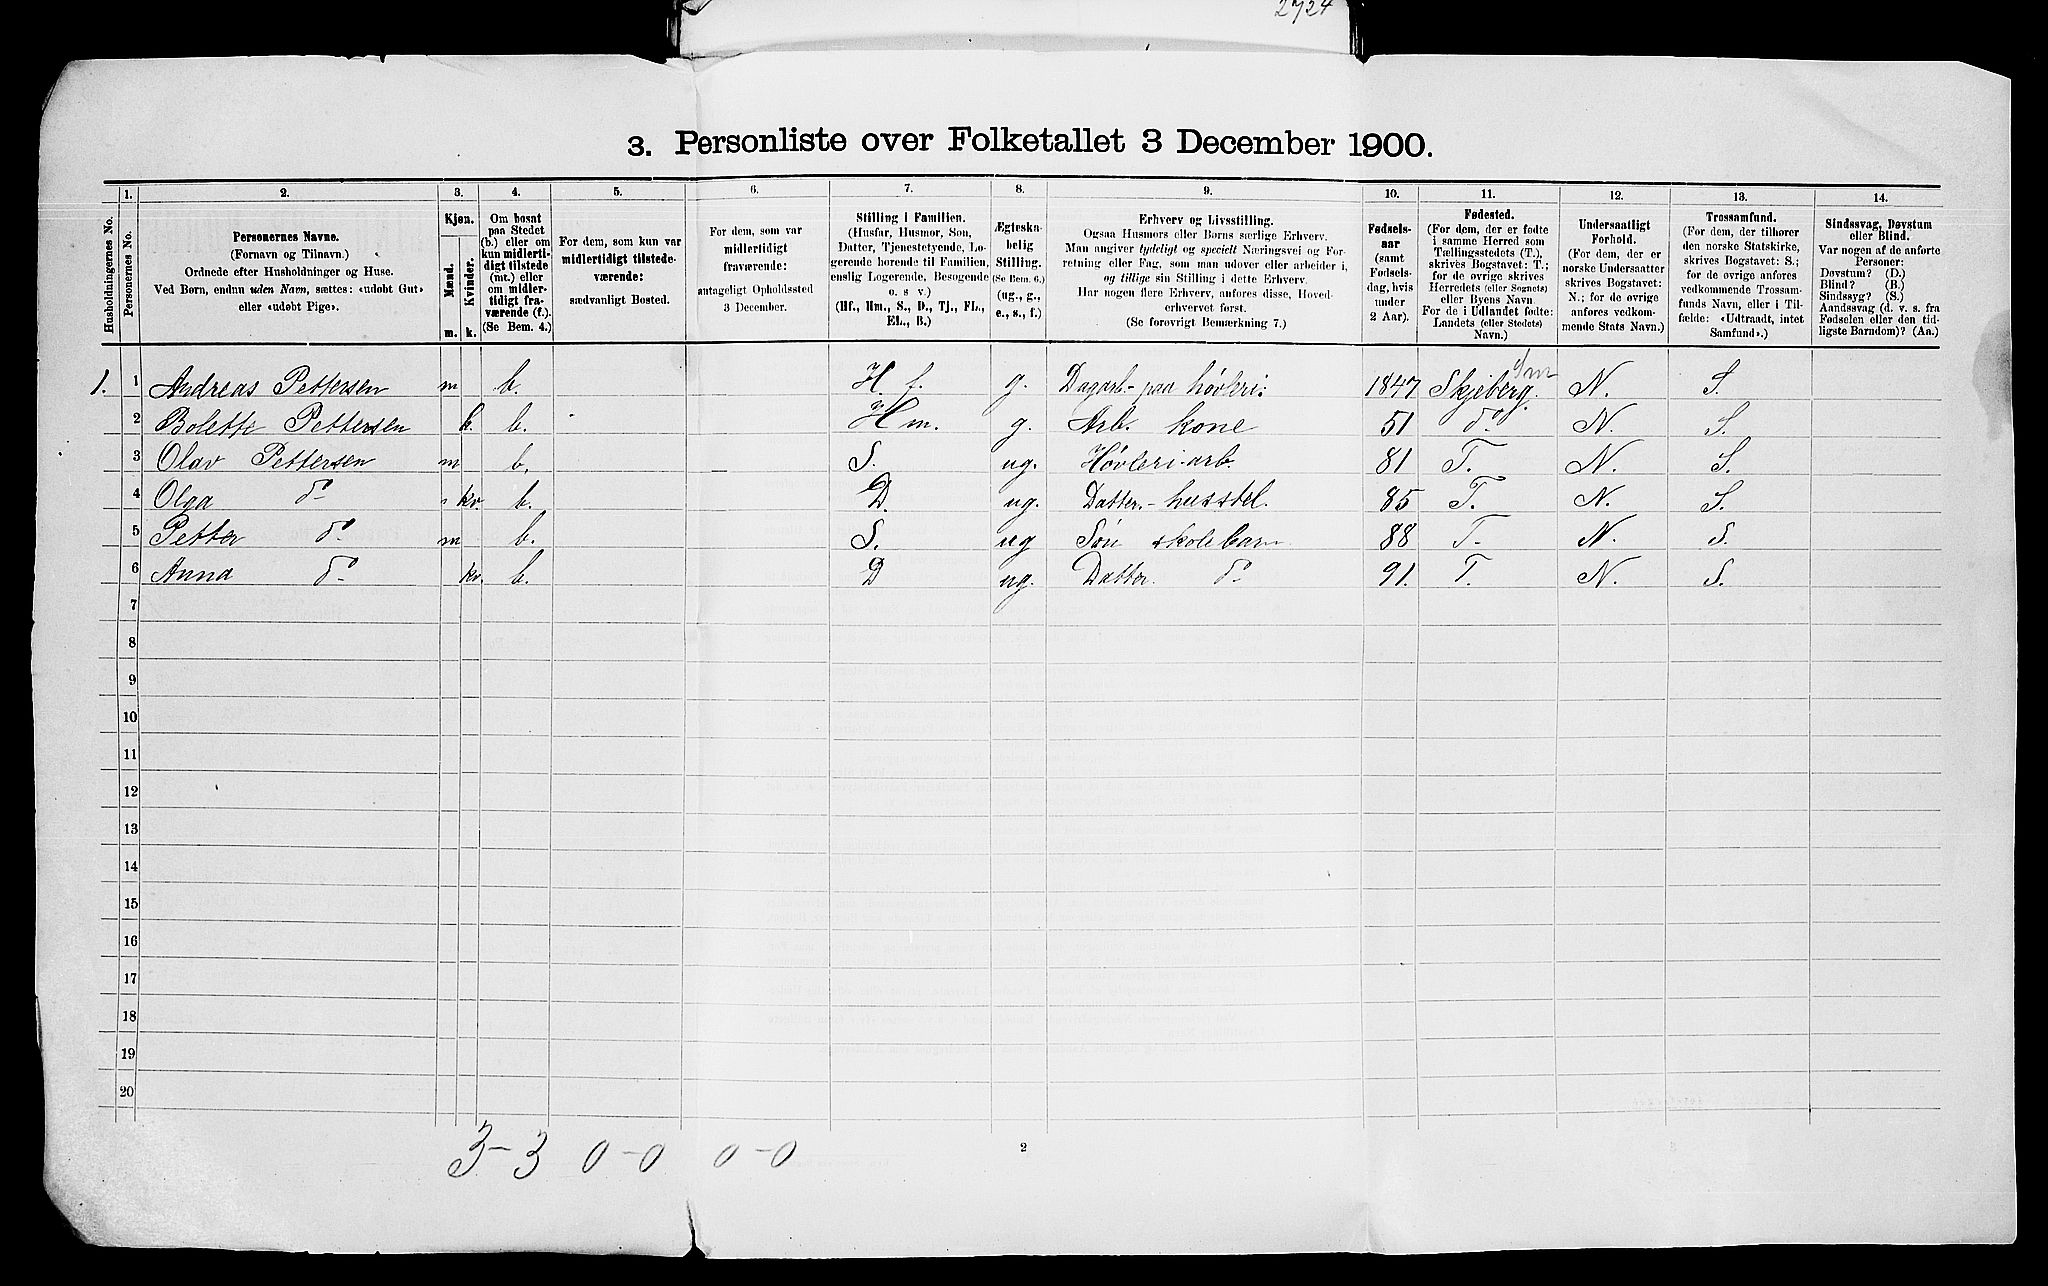 2724
3. Personliste over Folketallet 3 December 1900.
1. 2. 3. 4. 5. 6. 7. 8. 9. 10. 11. 12. 13. 14.
Husholdningernes No.
Personernes No.
Personernes Navne.
(Fornavn og Tilnavn.)
Ordnede efter Husholdninger og Huse.
Ved Børn, endnu uden Navn, sættes: «udøbt Gut»
eller «udøbt Pige».
Kjøn.
Mænd.
Kvinder.
m. k.
Om bosat
paa Stedet
(b.) eller om
kun midlerti-
digt tilstede
(mt.) eller
om midler-
tidigt fra-
værende (f.).
(Se Bem. 4.)
For dem, som kun var
midlertidigt tilstede-
værende:
sædvanligt Bosted.
For dem, som var
midlertidigt
fraværende:
antageligt Opholdssted
3 December.
Stilling i Familien.
(Husfar, Husmor, Søn,
Datter, Tjenestetyende, Lo-
gerende hørende til Familien,
enslig Logerende, Besøgende
o. s v.)
(Hf., Hm., S., D., Tj., FL.,
EL., B.)
Ægteska-
belig
Stilling.
(Se Bem. 6.)
(ug., g.,
e., s., f.)
Erhverv og Livsstilling.
Ogsaa Husmors eller Børns særlige Erhverv.
Man angiver tydeligt og specielt Næringsvei og For-
retning eller Fag, som man udover eller arbeider i,
og tillige sin Stilling i dette Erhverv.
Har nogen flere Erhverv, anføres disse, Hoved-
erhvervet først.
(Se forøvrigt Bemærkning 7.)
Fødsels-
aar
(samt
Fødsels-
dag, hvis
under
2 Aar).
Fødested.
(For dem, der er fødte
i samme Herred som
Tællingsstedets (T.),
skrives Bogstavet: T.;
for de øvrige skrives
Herredets (eller Sognets)
eller Byens Navn
For de i Udlandet fødte:
Landets (eller Stedets)
Navn.)
Undersaatligt
Forhold.
(For dem, der er
norske Undersaatter
skrives Bogstavet:
N.; for de øvrige
anføres vedkom-
mende Stats Navn.)
Trossamfund.
(For dem, der tilhører
den norske Statskirke,
skrives Bogstavet: S.;
for de øvrige anføres
vedkommende Trossam-
funds Navn, eller i Til-
fælde: «Udtraadt, intet
Samfund».)
Sindssvag, Døvstum
eller Blind.
Var nogen af de anførte
Personer:
Døvstum? (D.)
Blind? (B.)
Sindssyg? (S.)
Aandssvag (d. v. s. fra
Fødselen eller den tid-
ligste Barndom)? (Aa.)
1. 1 Andreas Pettersen m b. H. f. g. Dagarb.- paa høvleri. 1847 Skjeberg. N. S.
2 Bolette Pettersen k. b. Hm. g. Arb. kone 51 do N. S.
3 Olav Pettersen m b. S. ug. Høvleri-arb. 81 T. N. S.
4 Olga do kv. b. D. ug. Datter.- husstel. 85 T. N. S.
5 Petter do m b. S. ug Søn skolebarn 88 T. N. S.
6 Anna do kv. b. D ug. Datter. do 91. T. N. S.
7
8
9
10
11
12
13
14
15
16
17
18
19
20
3-3 0-0 0-0
2